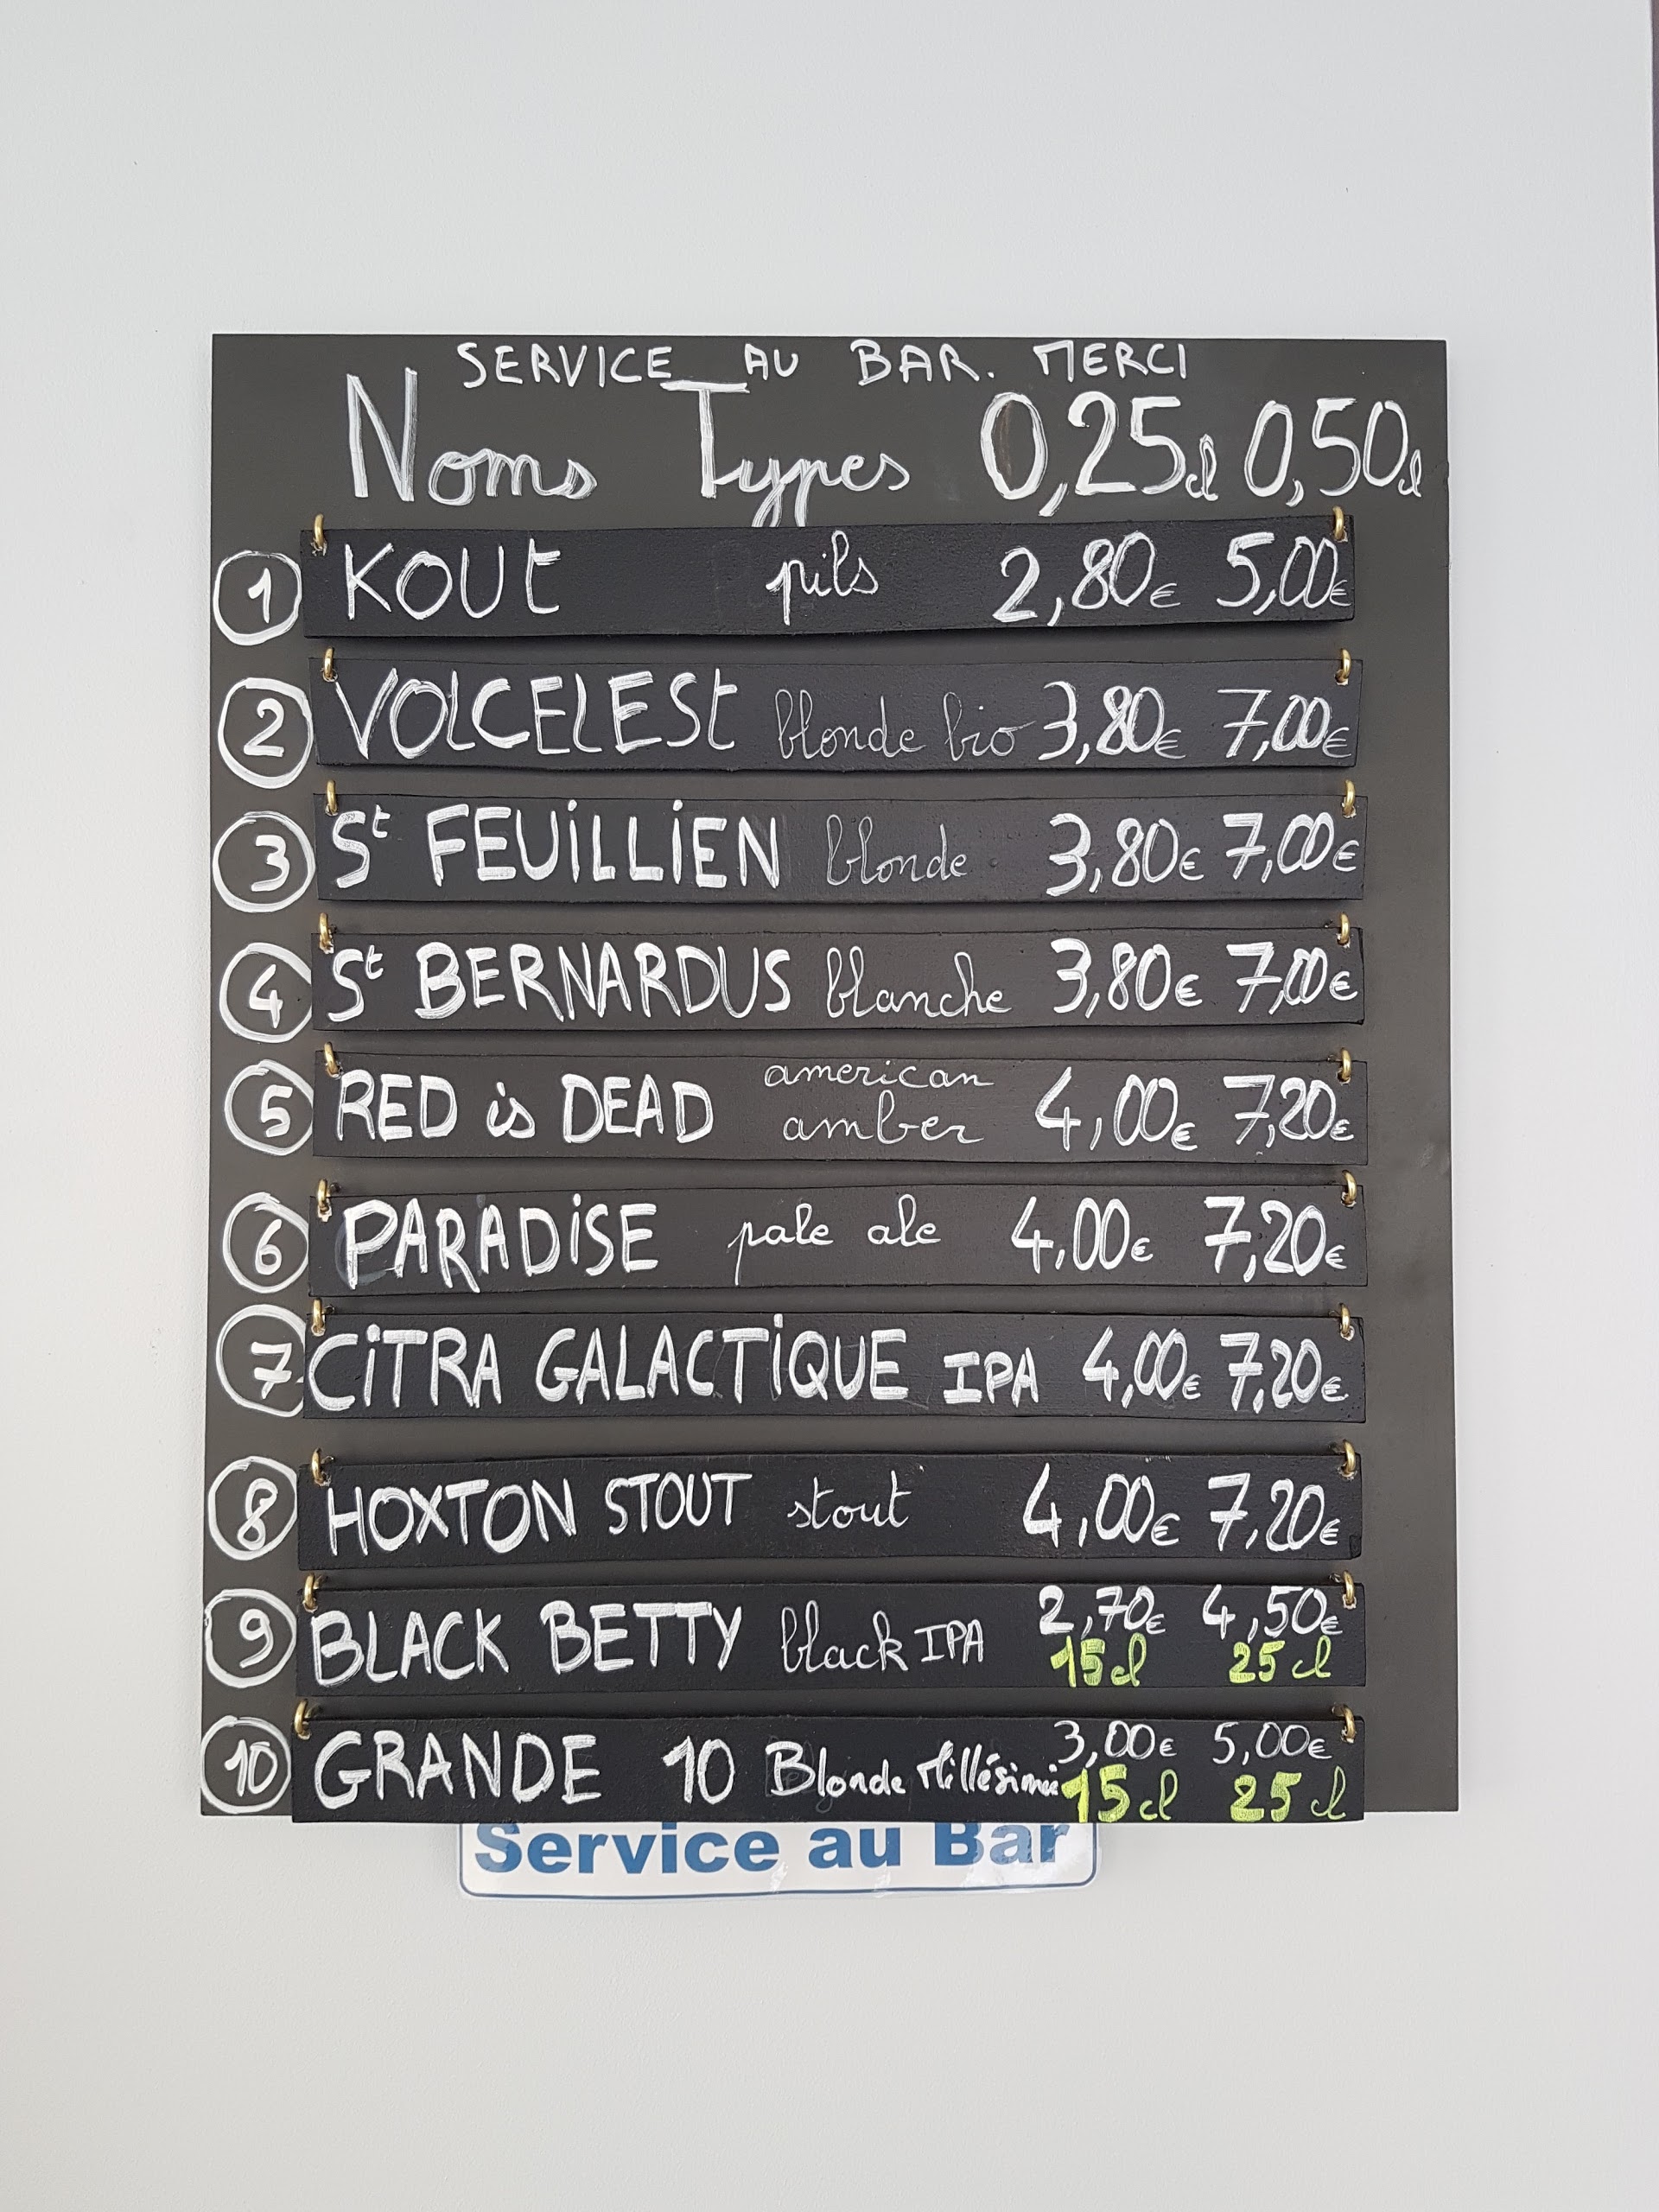 SERVICE AU BAR. MERCI
Noms Types 0,25cl 0,50cl
1 KOUt pils 2,80€ 5,00€
2 VOLCELESt blonde bio 3,80€ 7,00€
3 St FEUiLLiEN blonde 3,80€ 7,00€
4 St BERNARDUS blanche 3,80€ 7,00€
5 RED is DEAD american amber 4,00€ 7,20€
6 PARADiSE pale ale 4,00€ 7,20€
7 CiTRA GALACTiQUE IPA 4,00€ 7,20€
8 HOXTON STOUT stout 4,00€ 7,20€
9 BLACK BETTY black IPA 2,70€ 4,50€
15cl 25cl
10 GRANDE 10 Blonde Millésimée 3,00€ 5,00€
15cl 25cl
Service au Bar